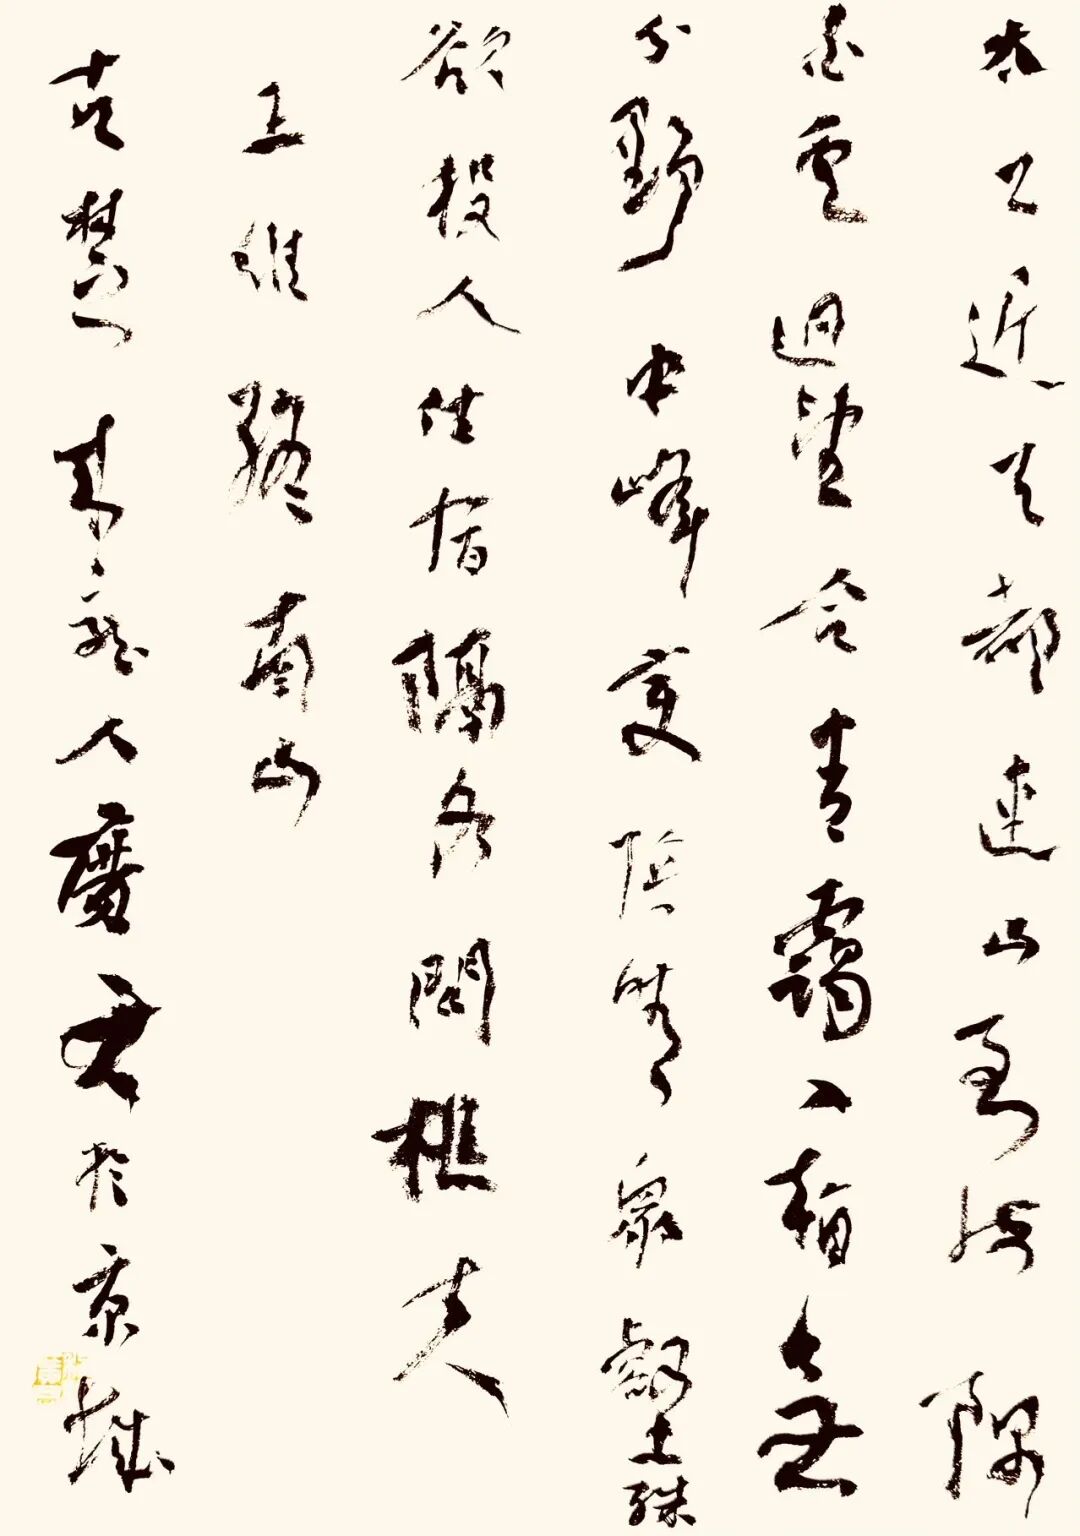 太乙近天都連山到海隅
白雲迴望合青靄入看無
分野中峰變陰晴眾壑殊
欲投人住宿隔水問樵夫
王維終南山
古楚龍人廣君於京城